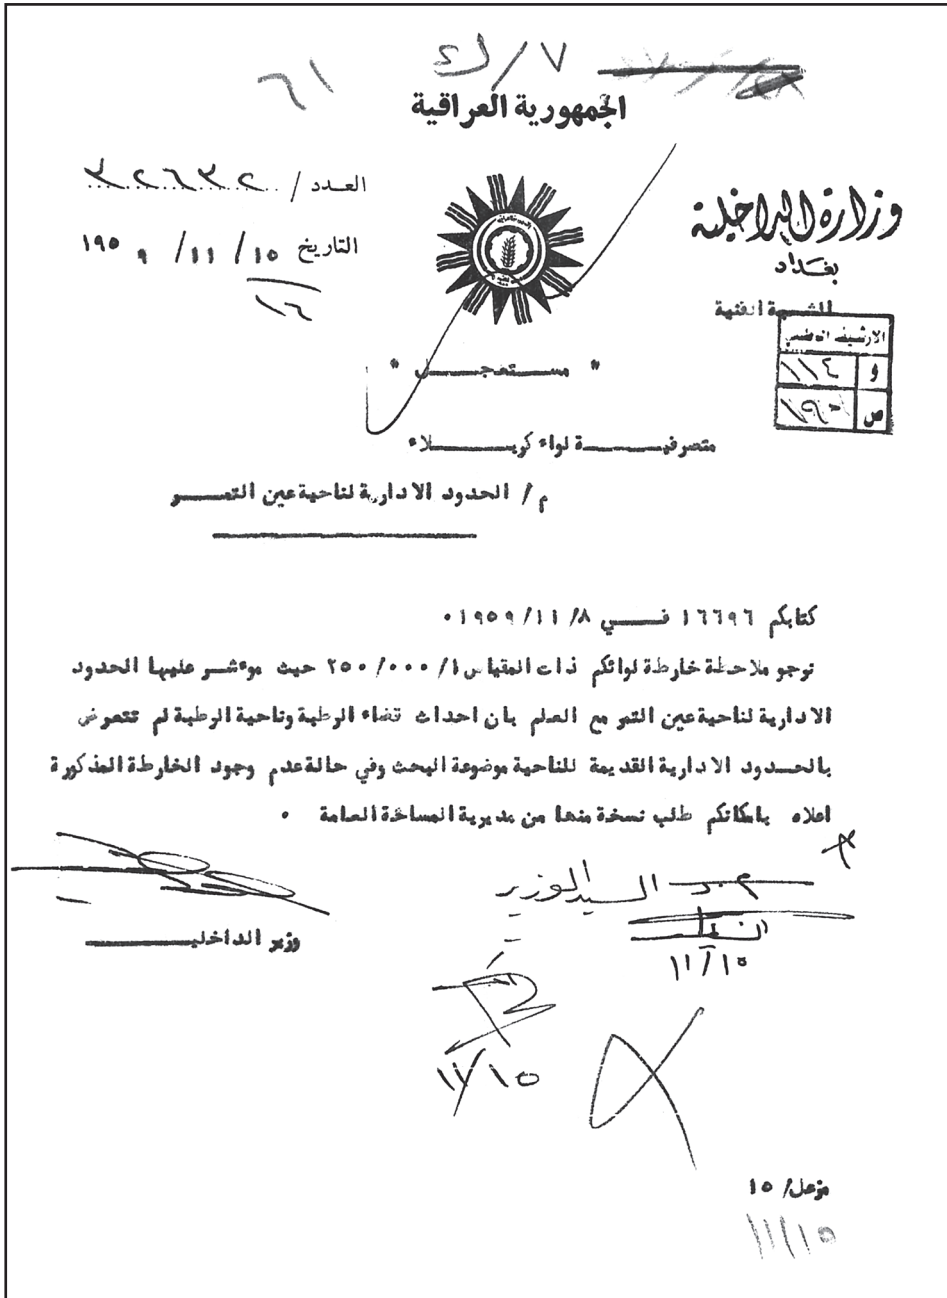 ٧/ك
٦١
الجمهورية العراقية
وزارة الداخلية
بغداد
الشعبة الفنية
العدد / ٣٢٦٣٢
التاريخ ١٥/ ١١/ ١٩٥٩
١٦
الارشيف الوطني
و ١١٤
ص
" مستعجل "
متصرفية لواء كربلاء
م / الحدود الادارية لناحية عين التمر
كتابكم ١٦٦٩٦ في ٨/ ١١/ ١٩٥٩٠
نرجو ملاحظة خارطة لوائكم ذات المقياس ١/ ٢٥٠/٠٠٠ حيث موءشر عليها الحدود
الادارية لناحية عين التمر مع العلم بان احداث قضاء الرطبة وناحية الرطبة لم تتعرض
بالحدود الادارية القديمة للناحية موضوعة البحث وفي حالة عدم وجود الخارطة المذكورة
اعلاه بامكانكم طلب نسخة منها من مديرية المساحة العامة ٠
السيد الوزير
١١/١٥
وزير الداخلية
١١/١٥
مزعل/ ١٥
١١/١٥